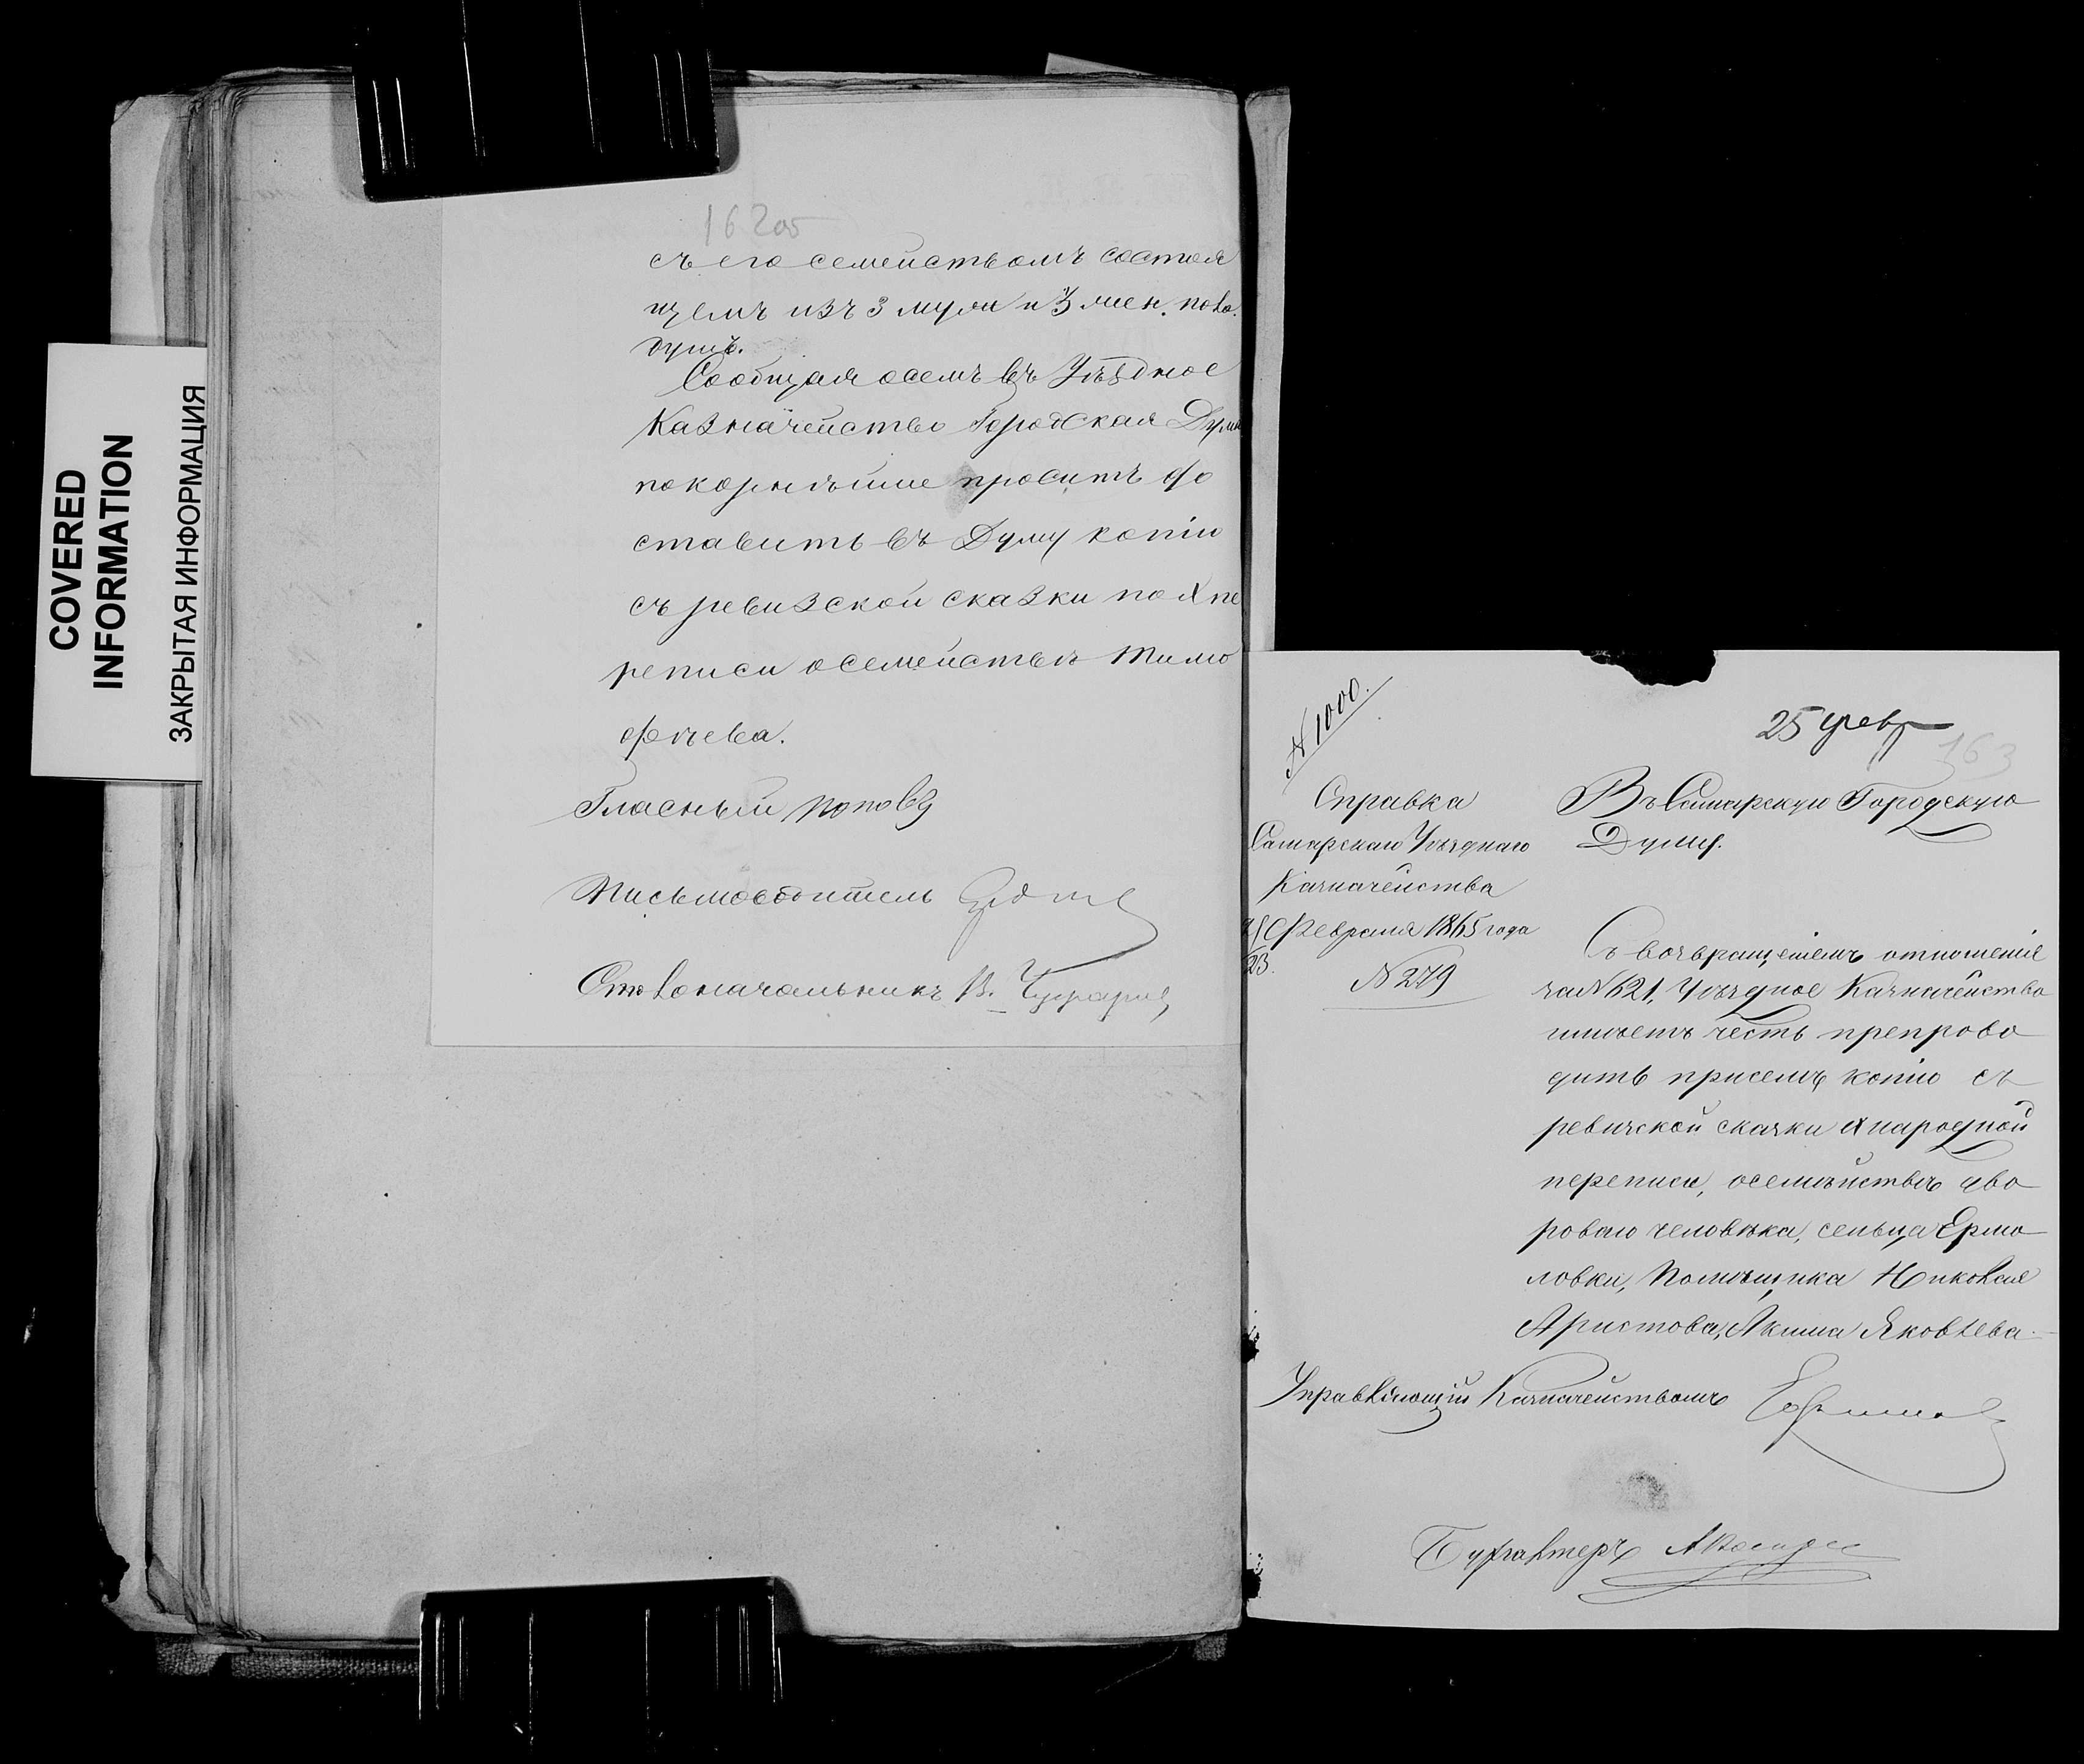 COVERED
INFORMATION
ЗАКРЫТАЯ ИНФОРМАЦИЯ
162об
съ его семействомъ состоя
щемъ изъ 3 муж и 3 жен. пола
душъ.
Сообщая о семъ въ Уѣздное
Казначейство Городская Дума
покорнѣйше проситъ до
ставить въ Думу копію
съ ревизской сказки по X пе
реписи о семействѣ Тимо
фѣева.
Гласный Поповъ
Письмоводитель
Столоначальникъ В.
№ 1000.
25 февр
163
Справка
Самарскаго Уѣзднаго
Казначейства
Февраля 1865 года
23.
№ 279
Въ Самарскую Городскую
Думу.
Съ возвращеніемъ отношенія
за № 621, Уѣздное Казначейство
имѣетъ честь препрово
дить присемъ копію съ
ревизской сказки X народной
переписи, о семѣйствѣ дво
роваго человѣка, сельца Ермо
ловки, Помѣщика Николая
Аристова, Акима Яковлева.
Управляющій Казначействомъ
Бухгалтеръ